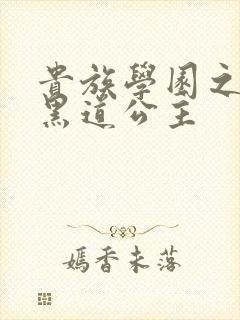 貴族學園之
黑道公主
嫣香未落